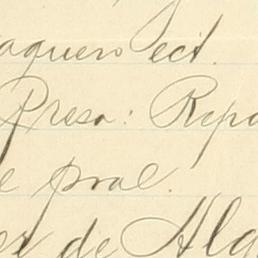 aquero ect.
Presa: Repa
e pral.
er de Alg